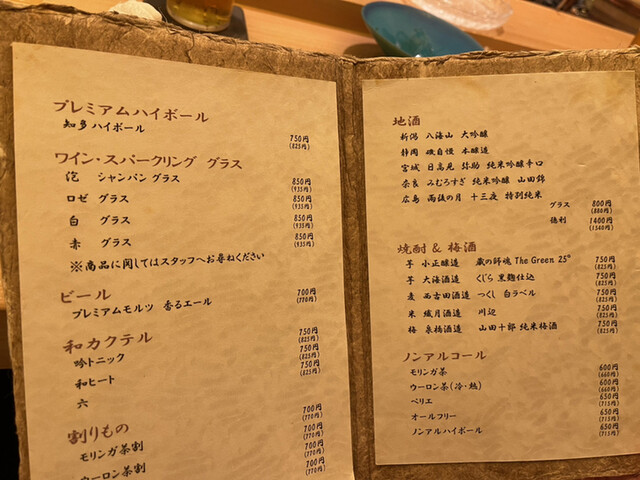 プレミアムハイボール
知多ハイボール 750円 (825円)
ワイン・スパークリング グラス
泡 シャンパン グラス 850円 (935円)
ロゼ グラス 850円 (935円)
白 グラス 850円 (935円)
赤 グラス 850円 (935円)
※商品に関してはスタッフへお尋ねください
ビール
プレミアムモルツ 香るエール 700円 (770円)
和カクテル
吟トニック 750円 (825円)
和ヒート 750円 (825円)
六 750円 (825円)
割りもの
モリンガ茶割 700円 (770円)
ウーロン茶割 700円 (770円)
700円 (770円)
地酒
新潟 八海山 大吟醸
静岡 磯自慢 本醸造
宮城 日高見 弥助 純米吟醸辛口
奈良 みむろすぎ 純米吟醸 山田錦
広島 雨後の月 十三夜 特別純米
グラス 800円 (880円)
徳利 1400円 (1540円)
焼酎 & 梅酒
芋 小正醸造 蔵の師魂 The Green 25° 750円 (825円)
芋 大海酒造 くじら 黒麹仕込 750円 (825円)
麦 西吉田酒造 つくし 白ラベル 750円 (825円)
米 繊月酒造 川辺 750円 (825円)
梅 泉橋酒造 山田十郎 純米梅酒 750円 (825円)
ノンアルコール
モリンガ茶 600円 (660円)
ウーロン茶(冷・熱) 600円 (660円)
ペリエ 650円 (715円)
オールフリー 650円 (715円)
ノンアルハイボール 650円 (715円)